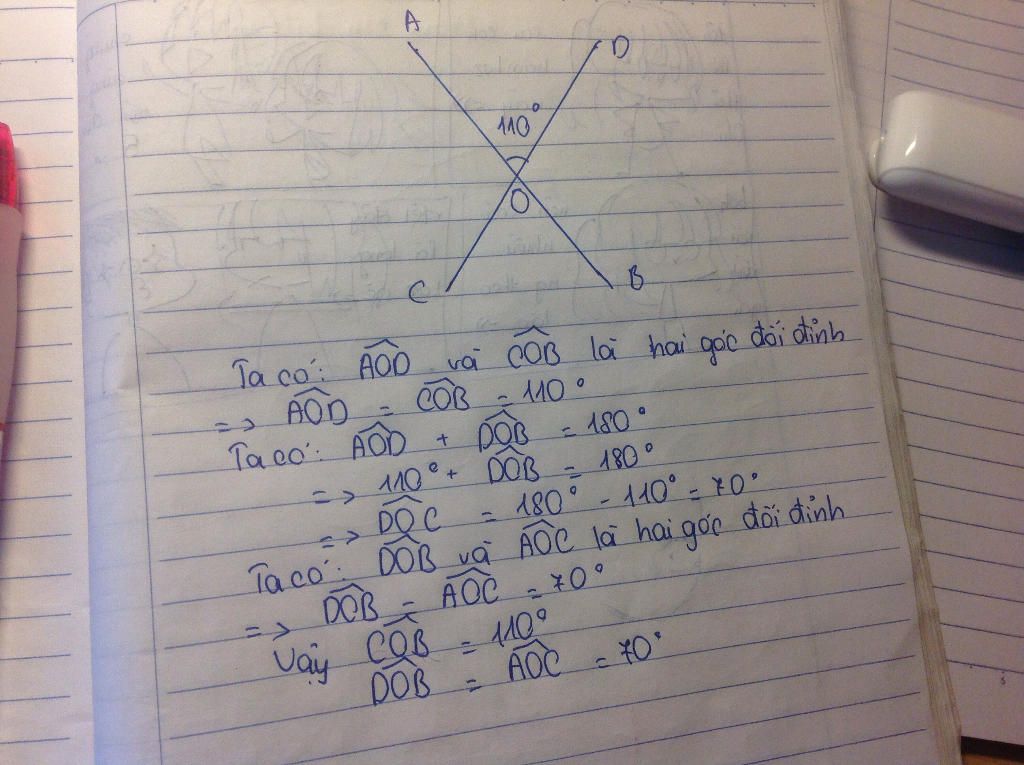 A
D
110°
O
C
B
Ta có: AÔD và CÔB là hai góc đối đỉnh
=> AÔD = CÔB = 110°
Ta có: AÔD + DÔB = 180°
=> 110° + DÔB = 180°
=> DÔC = 180° - 110° = 70°
Ta có: DÔB và AÔC là hai góc đối đỉnh
=> DÔB = AÔC = 70°
Vậy CÔB = 110°
DÔB = AÔC = 70°